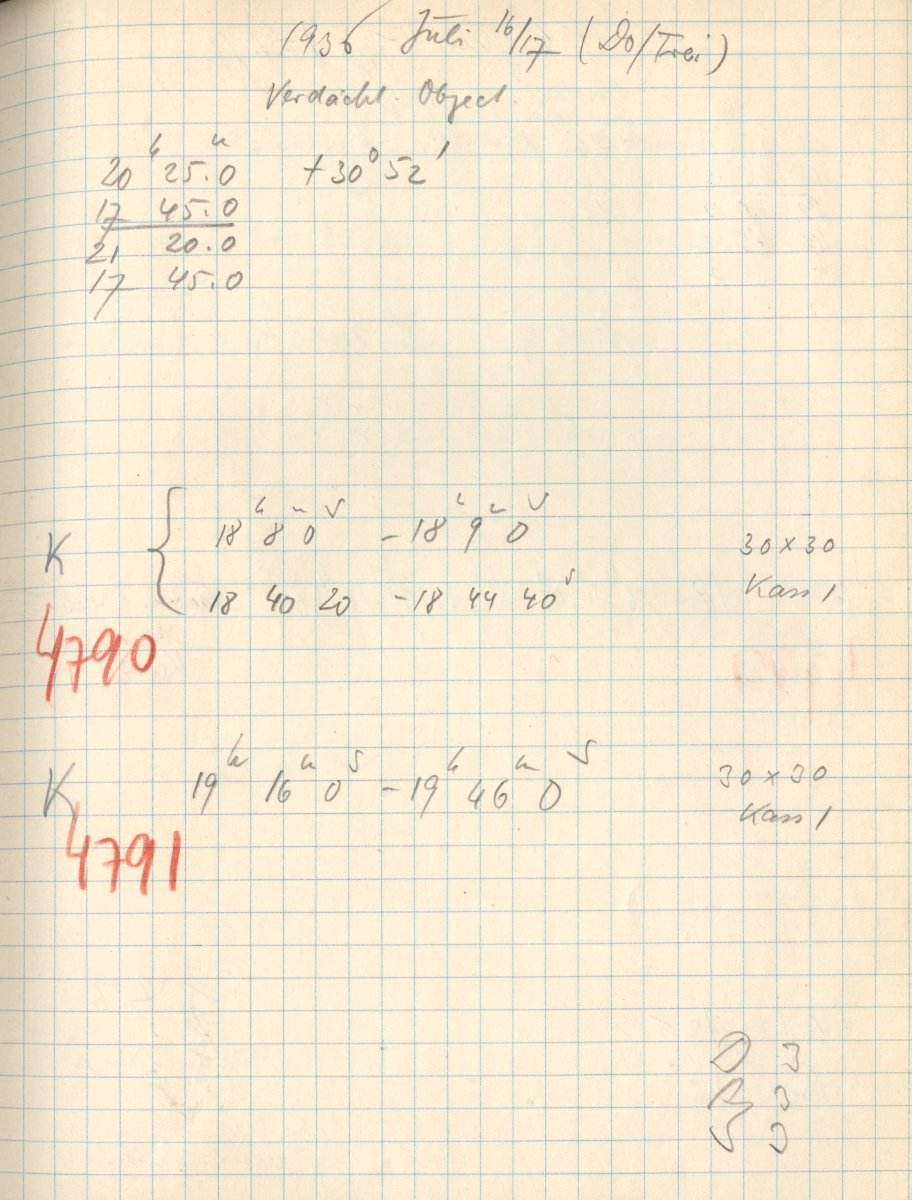 1936 Juli 16/17 (Do/Frei)
Verdächt. Object.
20ʰ 25.0ᵐ +30° 52'
17 45.0
21 20.0
17 45.0
K { 18ʰ 8ᵐ 0ˢ – 18ʰ 9ᵐ 0ˢ 30 × 30
18 40 20 – 18 44 40ˢ Kass 1
4790
K 19ʰ 16ᵐ 0ˢ – 19ʰ 46ᵐ 0ˢ 30 × 30
Kass 1
4791
D 3
R 3
S 0